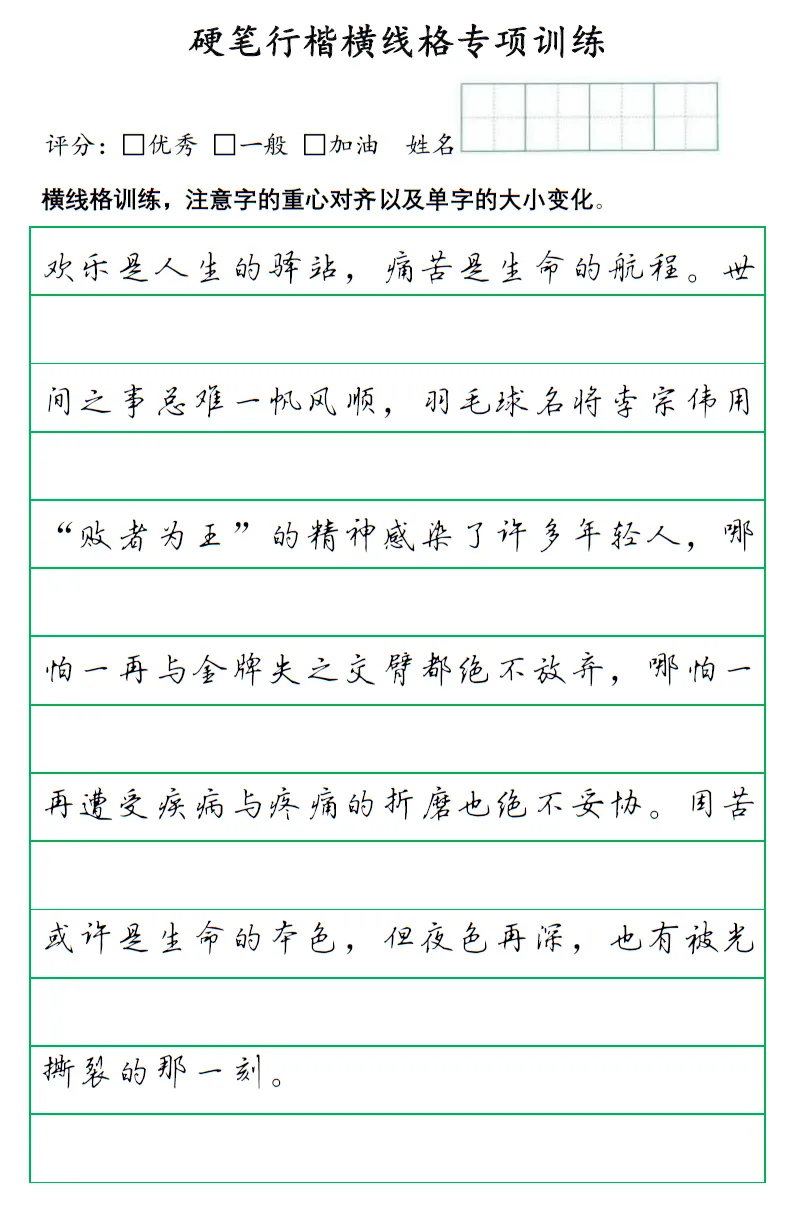 硬笔行楷横线格专项训练
评分：□优秀 □一般 □加油 姓名
横线格训练，注意字的重心对齐以及单字的大小变化。
欢乐是人生的驿站，痛苦是生命的航程。世
间之事总难一帆风顺，羽毛球名将李宗伟用
“败者为王”的精神感染了许多年轻人，哪
怕一再与金牌失之交臂都绝不放弃，哪怕一
再遭受疾病与疼痛的折磨也绝不妥协。困苦
或许是生命的本色，但夜色再深，也有被光
撕裂的那一刻。